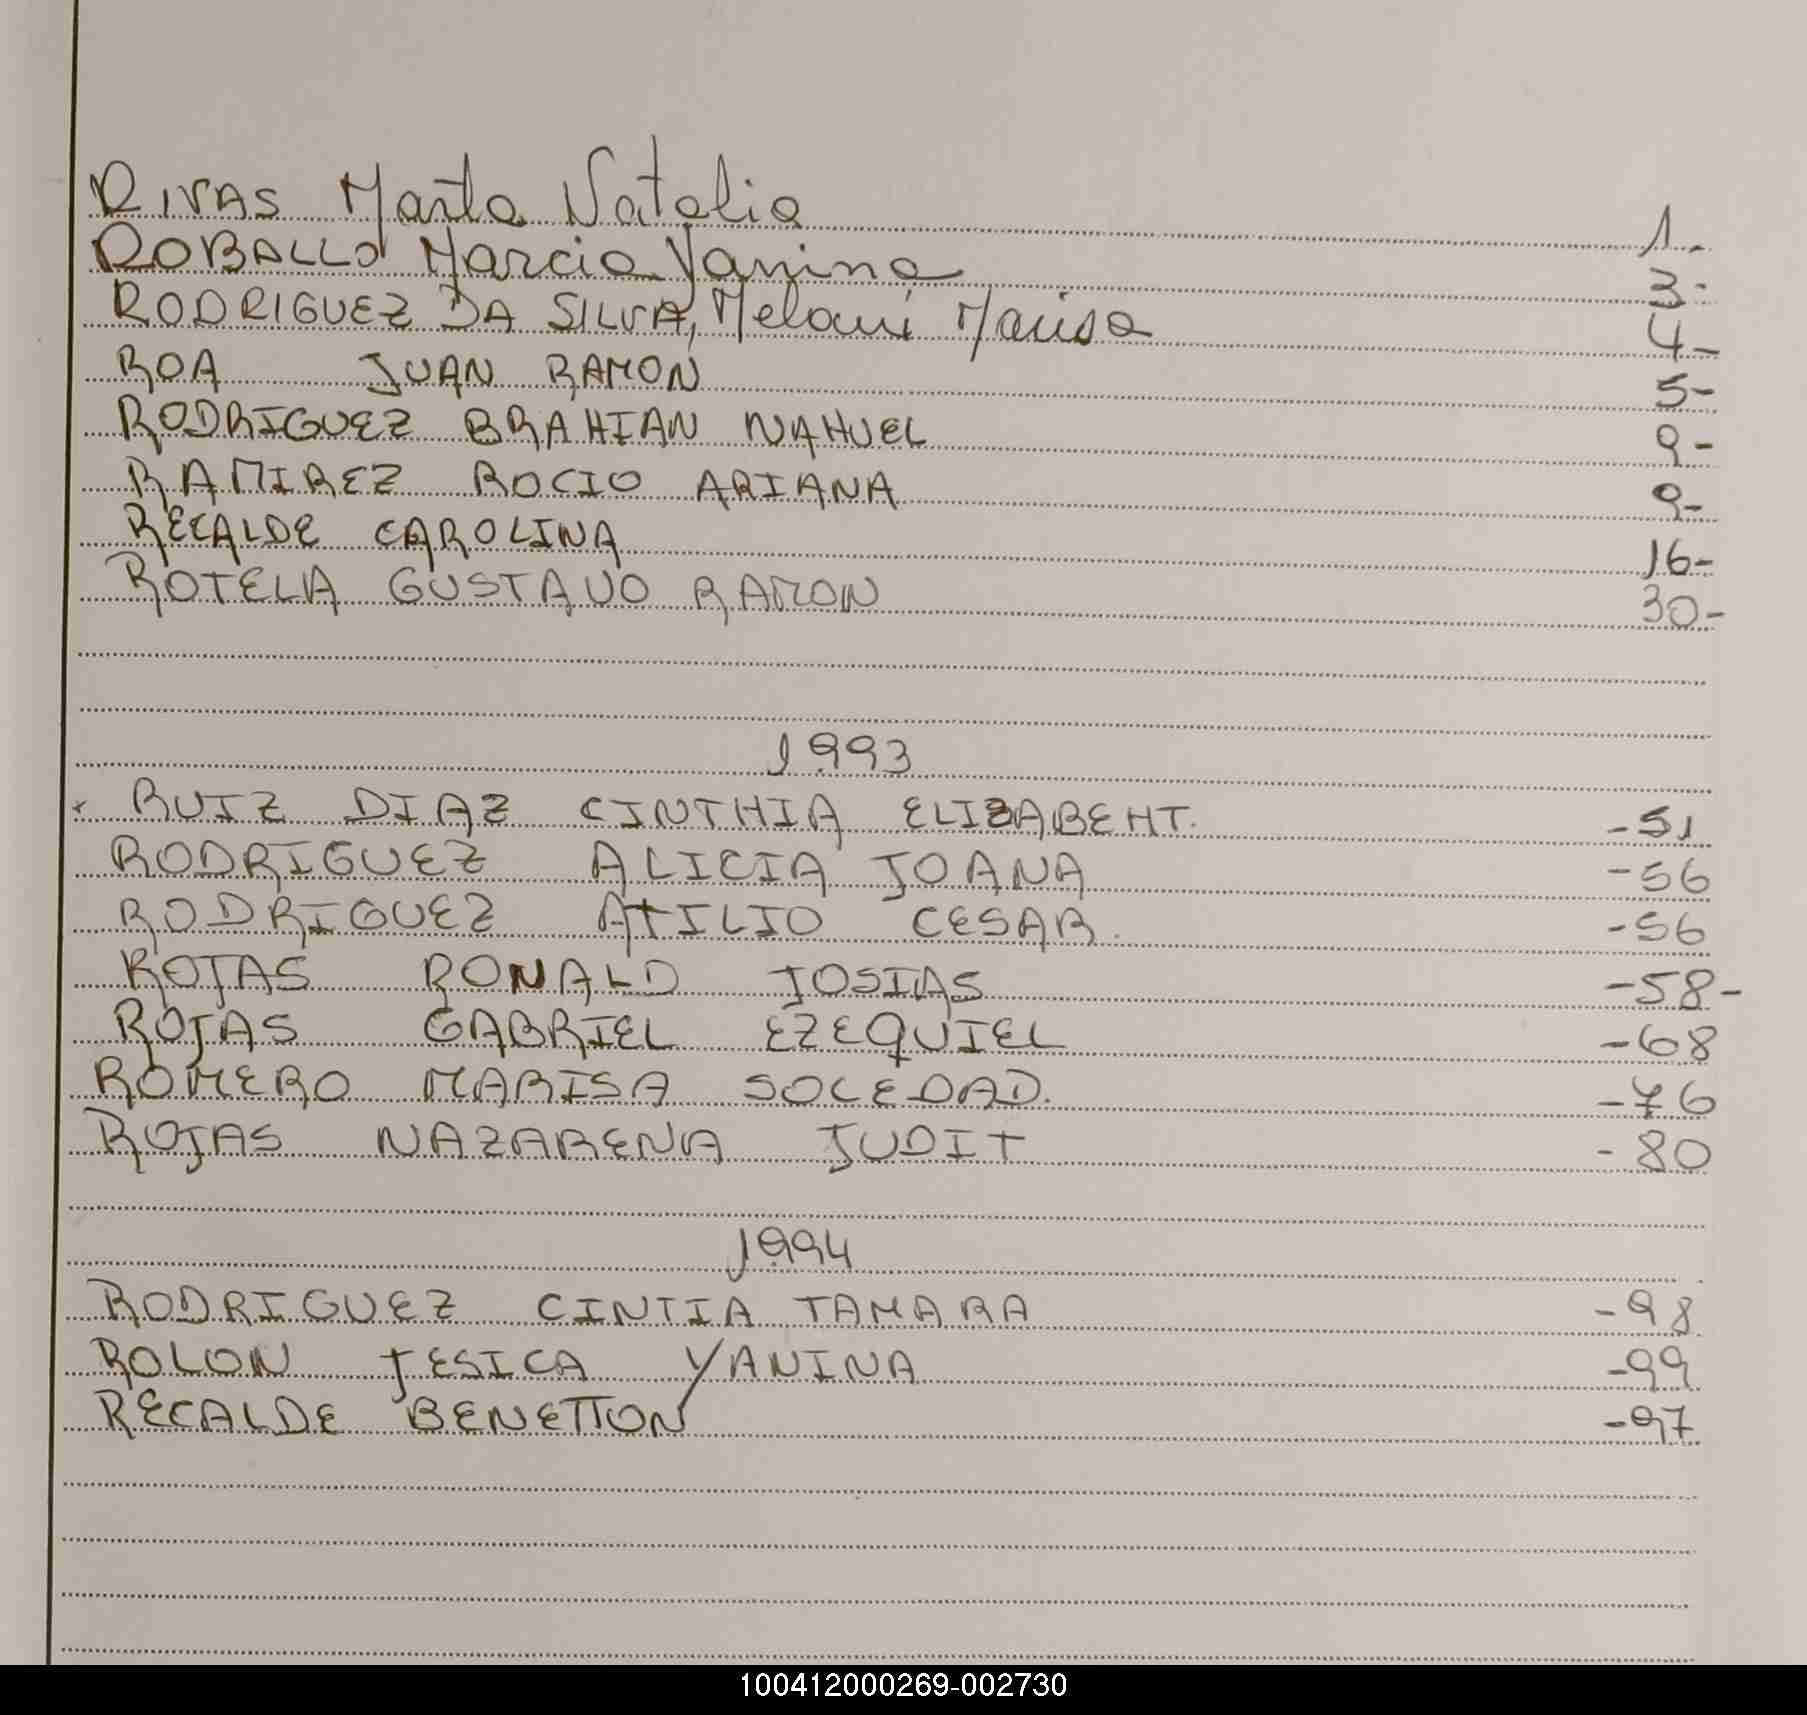 RIVAS Marta Natalia 1-
ROBALLO Marcia Yanina 3-
RODRIGUEZ DA SILVA, Melani Marisa 4-
ROA JUAN RAMON 5-
RODRIGUEZ BRAHIAN NAHUEL 9-
RAMIREZ ROCIO ARIANA 9-
RECALDE CAROLINA 16-
ROTELA GUSTAVO RAMON 30-
1993
RUIZ DIAZ CINTHIA ELIZABEHT. -51
RODRIGUEZ ALICIA JOANA -56
RODRIGUEZ ATILIO CESAR. -56
ROJAS RONALD JOSIAS -58-
ROJAS GABRIEL EZEQUIEL -68
ROMERO MARISA SOLEDAD. -76
ROJAS NAZARENA JUDIT -80
1994
RODRIGUEZ CINTIA TAMARA -98
ROLON JESICA YANINA -99
RECALDE BENETTON -97
100412000269-002730